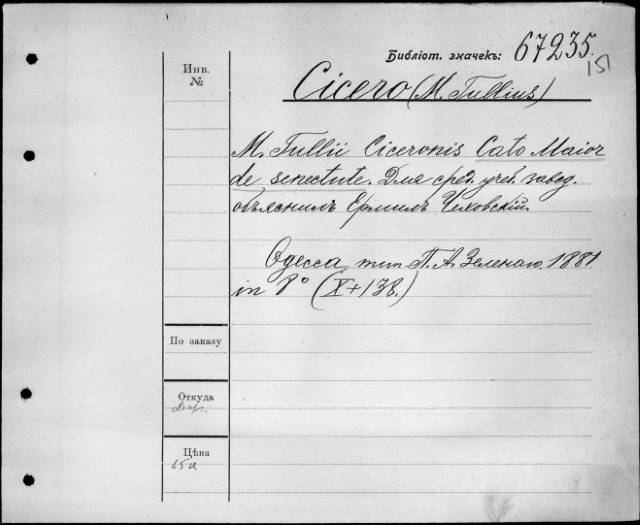 Библіот. значекъ: 67235.
151
Инв.
№
Cicero (M. Tullius)
M. Tullii Ciceronis Cato Maior
de senectute. Для сред. учеб. завед.
объяснилъ Ермилъ Чеховскій.
Одесса тип. П. А. Зеленаго. 1881
in 8° (X+138.)
По заказу
Откуда
Цѣна
65 к